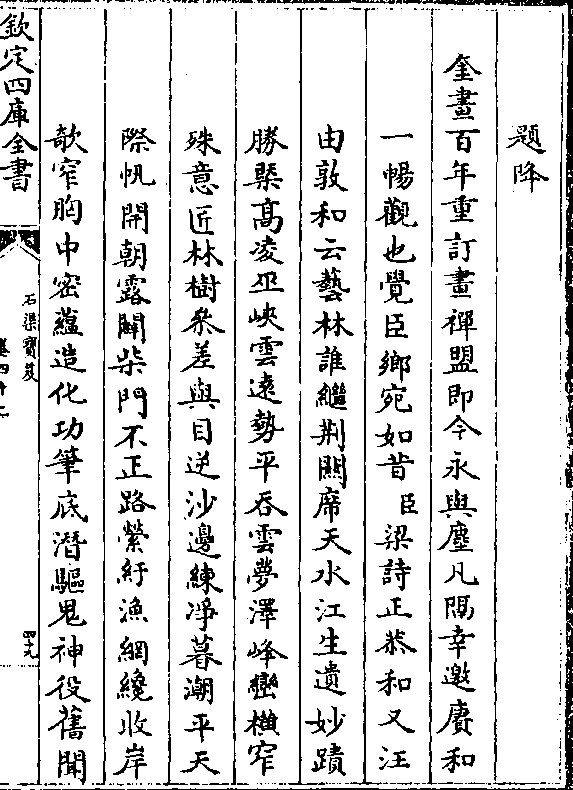 題降
奎畫百年重訂畫禪盟即今永與塵凡隔幸邀賡和
一暢觀也覺臣鄉宛如昔臣梁詩正恭和又汪
由敦和云藝林誰繼荆關席天水江生遺妙蹟
勝槩髙凌巫峽雲遠勢平吞雲夢澤峰巒横窄
殊意匠林樹參差與目逆沙邊練凈暮潮平天
際帆開朝露闢柴門不正路縈紆漁網纔收岸
欹窄胸中宻蘊造化功筆底潛驅鬼神役舊聞
欽定四庫全書
石渠寶笈
卷四十二
四九